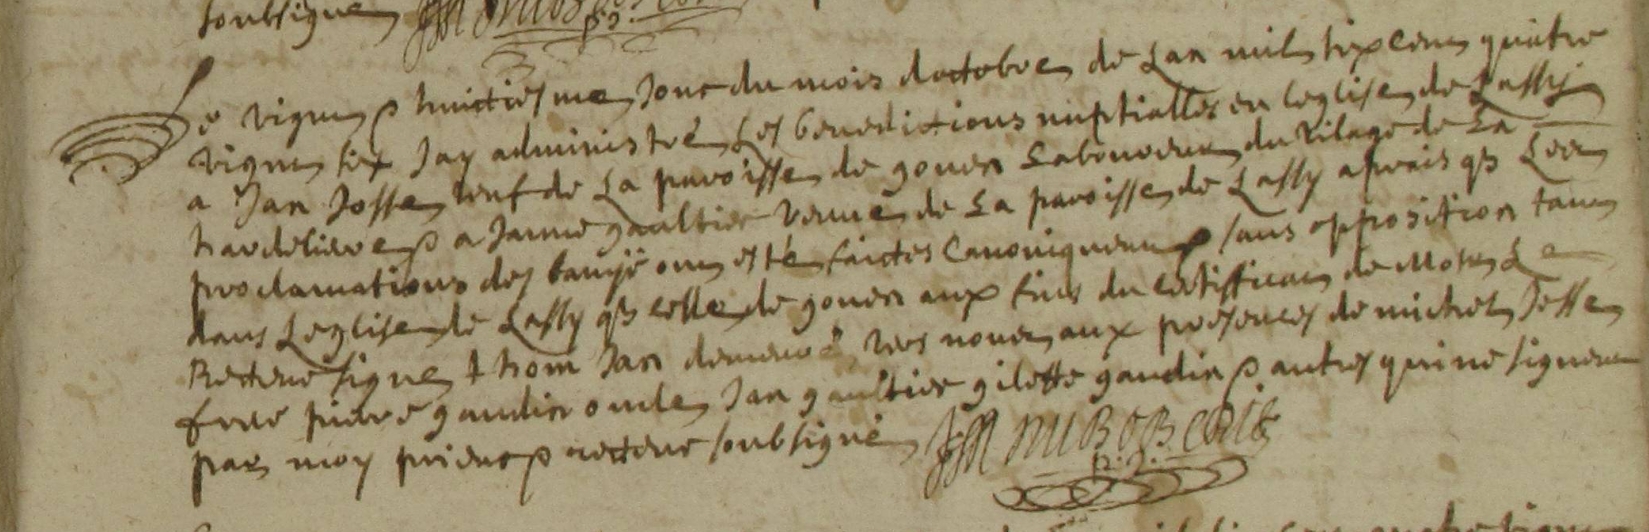 soubsigne
Le vigne & huictiesme jour du mois d octobre de Lan mil six cens quatre
vignt six Jay administré Les benedictions nuptialles en Leglise de Lassy
a Jan Josse veuf de La paroisse de goven Laboureur du vilage de La
hardeliere & a Janne gaultier veuve de La paroisse de Lassy apreis q3 Les
proclamations des bans ont esté faictes Canoniquement & sans opposition tant
dans Leglise de Lassy q3 celle de goven aux fins du certifficat de Mosr Le
Recteur signe thom Jan demeuré vers nous aux presences de michel Josse
frere pierre gaudin oncle Jan gaultier gilette gaudin & autres qui ne signent
par moy prieur & recteur soubsigné
p. r.